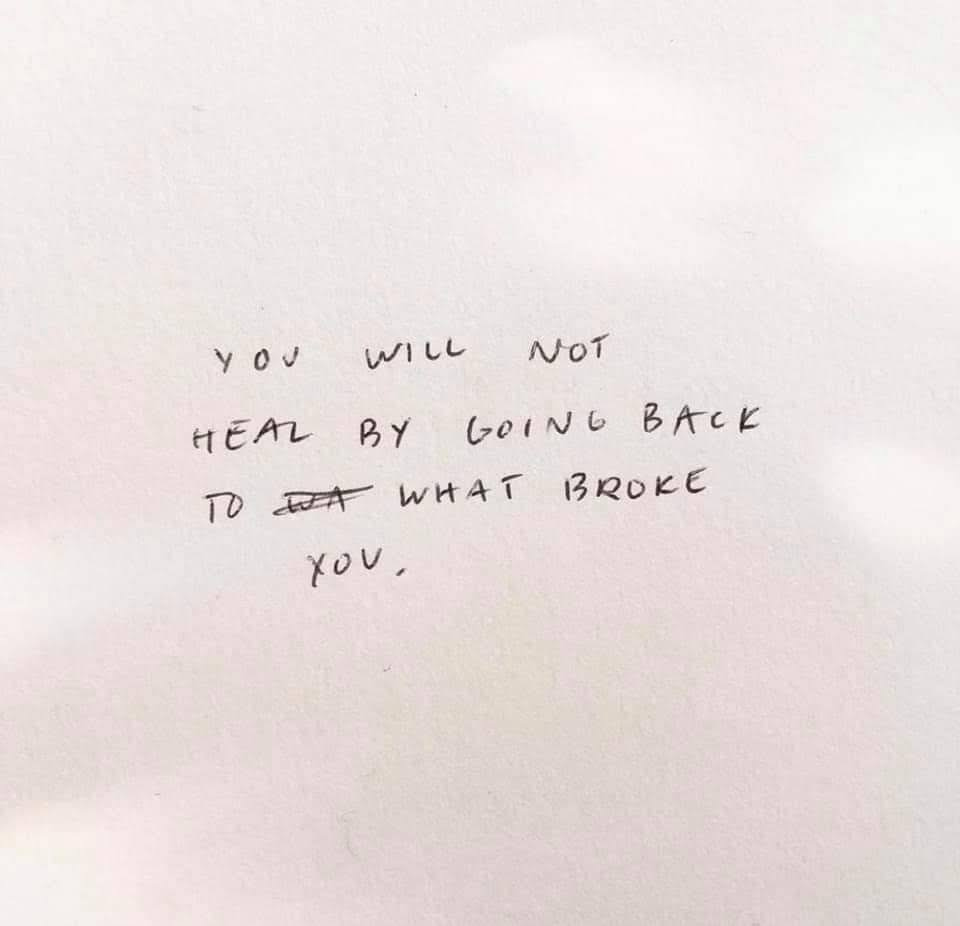 YOU WILL NOT
HEAL BY GOING BACK
TO WHAT BROKE
YOU.